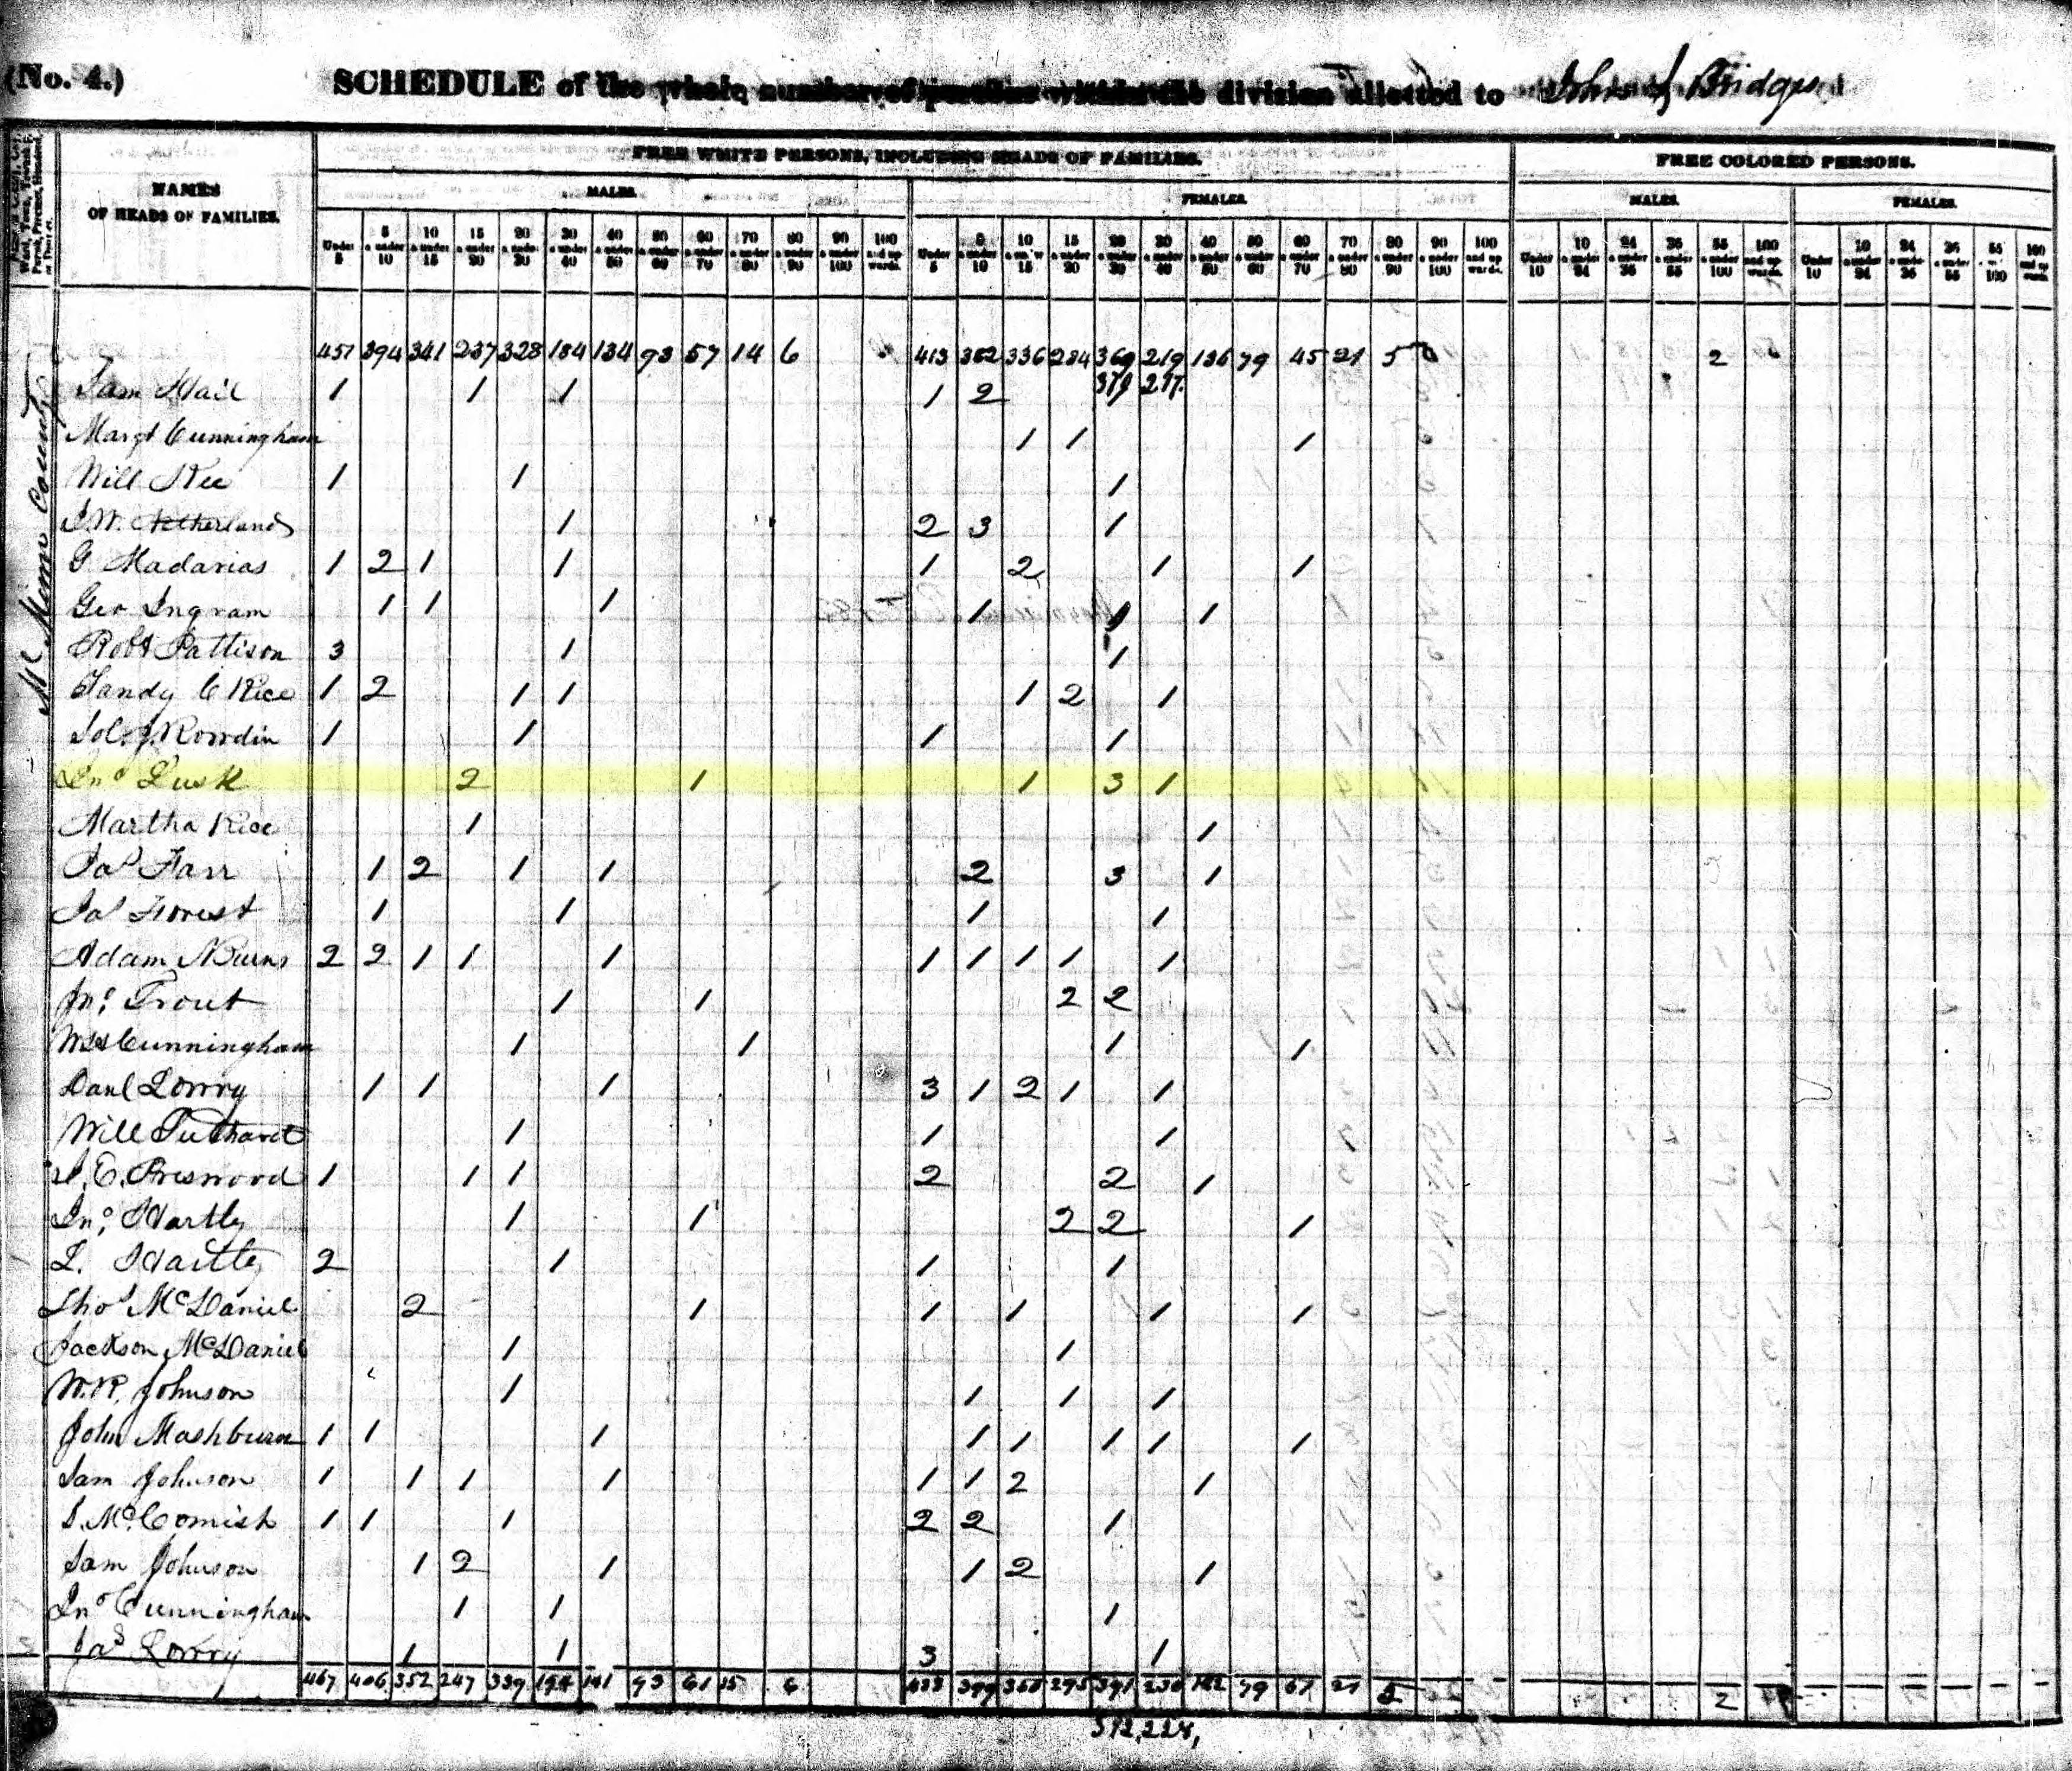 (No. 4.) SCHEDULE of the whole number of persons within the division allotted to Bridges
NAMES OF HEADS OF FAMILIES.
FREE WHITE PERSONS, INCLUDING HEADS OF FAMILIES.
FREE COLORED PERSONS.
MALES. FEMALES. MALES. FEMALES.
Under 5 5 & under 10 10 & under 15 15 & under 20 20 & under 30 30 & under 40 40 & under 50 50 & under 60 60 & under 70 70 & under 80 80 & under 90 90 & under 100 100 and upwards. Under 5 5 & under 10 10 & under 15 15 & under 20 20 & under 30 30 & under 40 40 & under 50 50 & under 60 60 & under 70 70 & under 80 80 & under 90 90 & under 100 100 and upwards. Under 10 10 & under 24 24 & under 36 36 & under 55 55 & under 100 100 and upwards. Under 10 10 & under 24 24 & under 36 36 & under 55 55 & under 100 100 and upwards.
McMinn County
457 394 341 237 328 184 134 93 57 14 6 413 382 336 284 369 219 136 79 45 21 5 2
379 217
Sam Hail 1 1 1 1 2
Margt Cunningham 1 1 1
Will Kee 1 1 1
J.W. Netherlands 1 2 3 1
G Madarias 1 2 1 1 1 2 1 1
Geo Ingram 1 1 1 1 1 1
Robt Pattison 3 1 1
Tandy C Rice 1 2 1 1 1 2 1
Sol. J. Rowdin 1 1 1 1
Jno Lusk 2 1 1 3 1
Martha Rice 1 1
Jas Farr 1 2 1 1 2 3 1
Jas Forest 1 1 1 1
Adam Burns 2 2 1 1 1 1 1 1 1 1
Jno. Trout 1 1 2 2
Cunningham 1 1 1 1
Danl Lowry 1 1 1 3 1 2 1 1
Will 1 1 1
E. Preswood 1 1 1 2 2 1
Jno. Hartly 1 1 2 2 1
L. Hartly 2 1 1 1
Thos McDaniel 2 1 1 1 1 1
Jackson McDaniel 1 1
W.R. Johnson 1 1 1 1
John Mashburn 1 1 1 1 1 1 1 1
Sam Johnson 1 1 1 1 1 1 2 1
S. McComish 1 1 1 2 2 1
Sam Johnson 1 2 1 1 2 1
Jno Cunningham 1 1 1
Jas Lowry 1 1 3 1
467 406 352 247 339 194 141 93 61 15 6 433 399 350 295 391 230 142 79 51 21 5 2
392, 228,